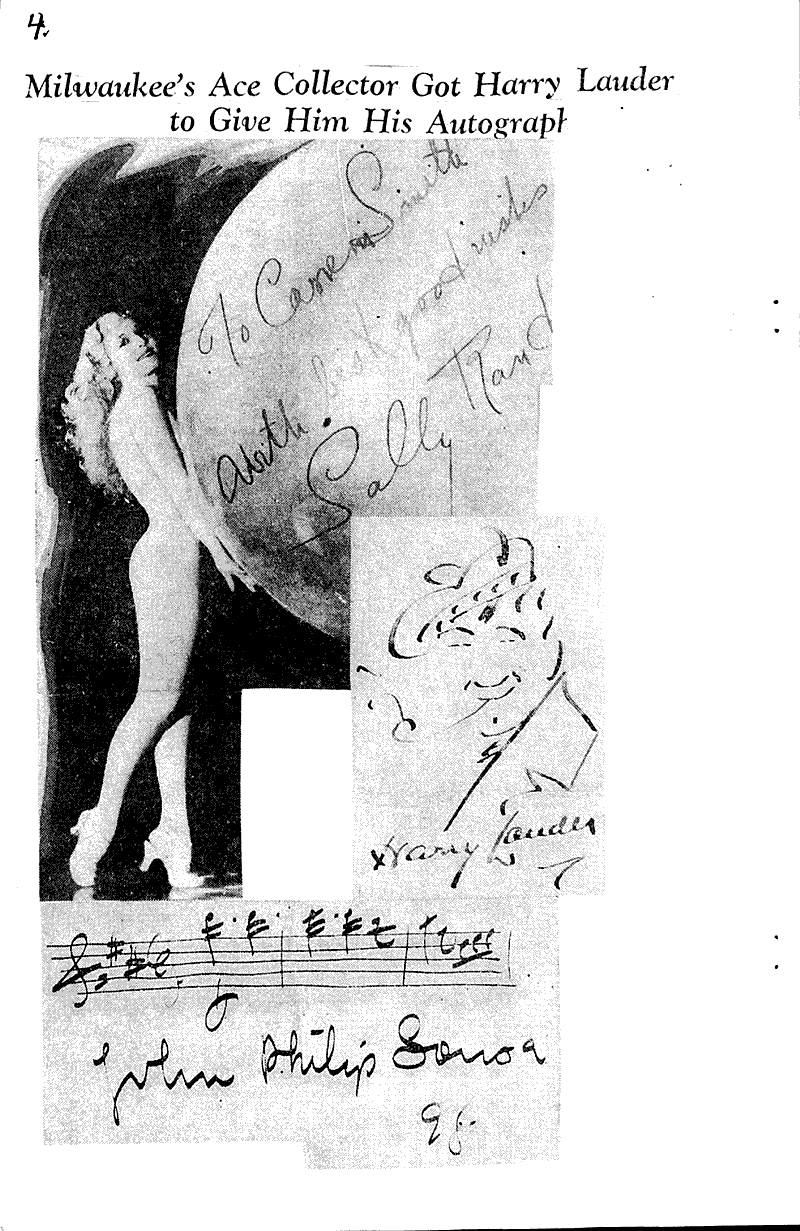 4.
Milwaukee's Ace Collector Got Harry Lauder
to Give Him His Autograph
To Cameron Smith
With best good wishes
Sally Rand
Harry Lauder
John Philip Sousa